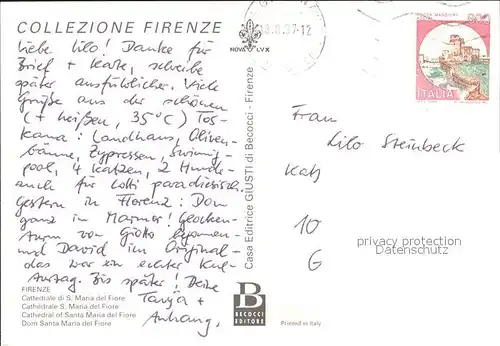 COLLEZIONE FIRENZE
Liebe Lilo! Danke für
Brief + Karte, schreibe
später ausführlicher. Viele
Grüße aus der schönen
(+ heißen, 35°C) Tos-
kana: Landhaus, Oliven-
bäume, Zypressen, Swimmig-
pool, 4 Katzen, 2 Hunde -
auch für Lotti paradiesisch.
Gestern in Florenz: Dom
ganz in Marmor! Glocken-
turm von Giotto
und David im Original -
das war ein echter Kul-
Bis später! Deine
Tanja +
Anhang.
FIRENZE
Cattedrale di S. Maria del Fiore
Cathédrale S. Maria del Fiore
Cathedral of Santa Maria del Fiore
Dom Santa Maria del Fiore
NOVA LVX
Casa Editrice GIUSTI di Becocci - Firenze
B
BECOCCI
EDITORE
Printed in Italy
ITALIA
Frau
Lilo Steinbeck
10
G
privacy protection
Datenschutz